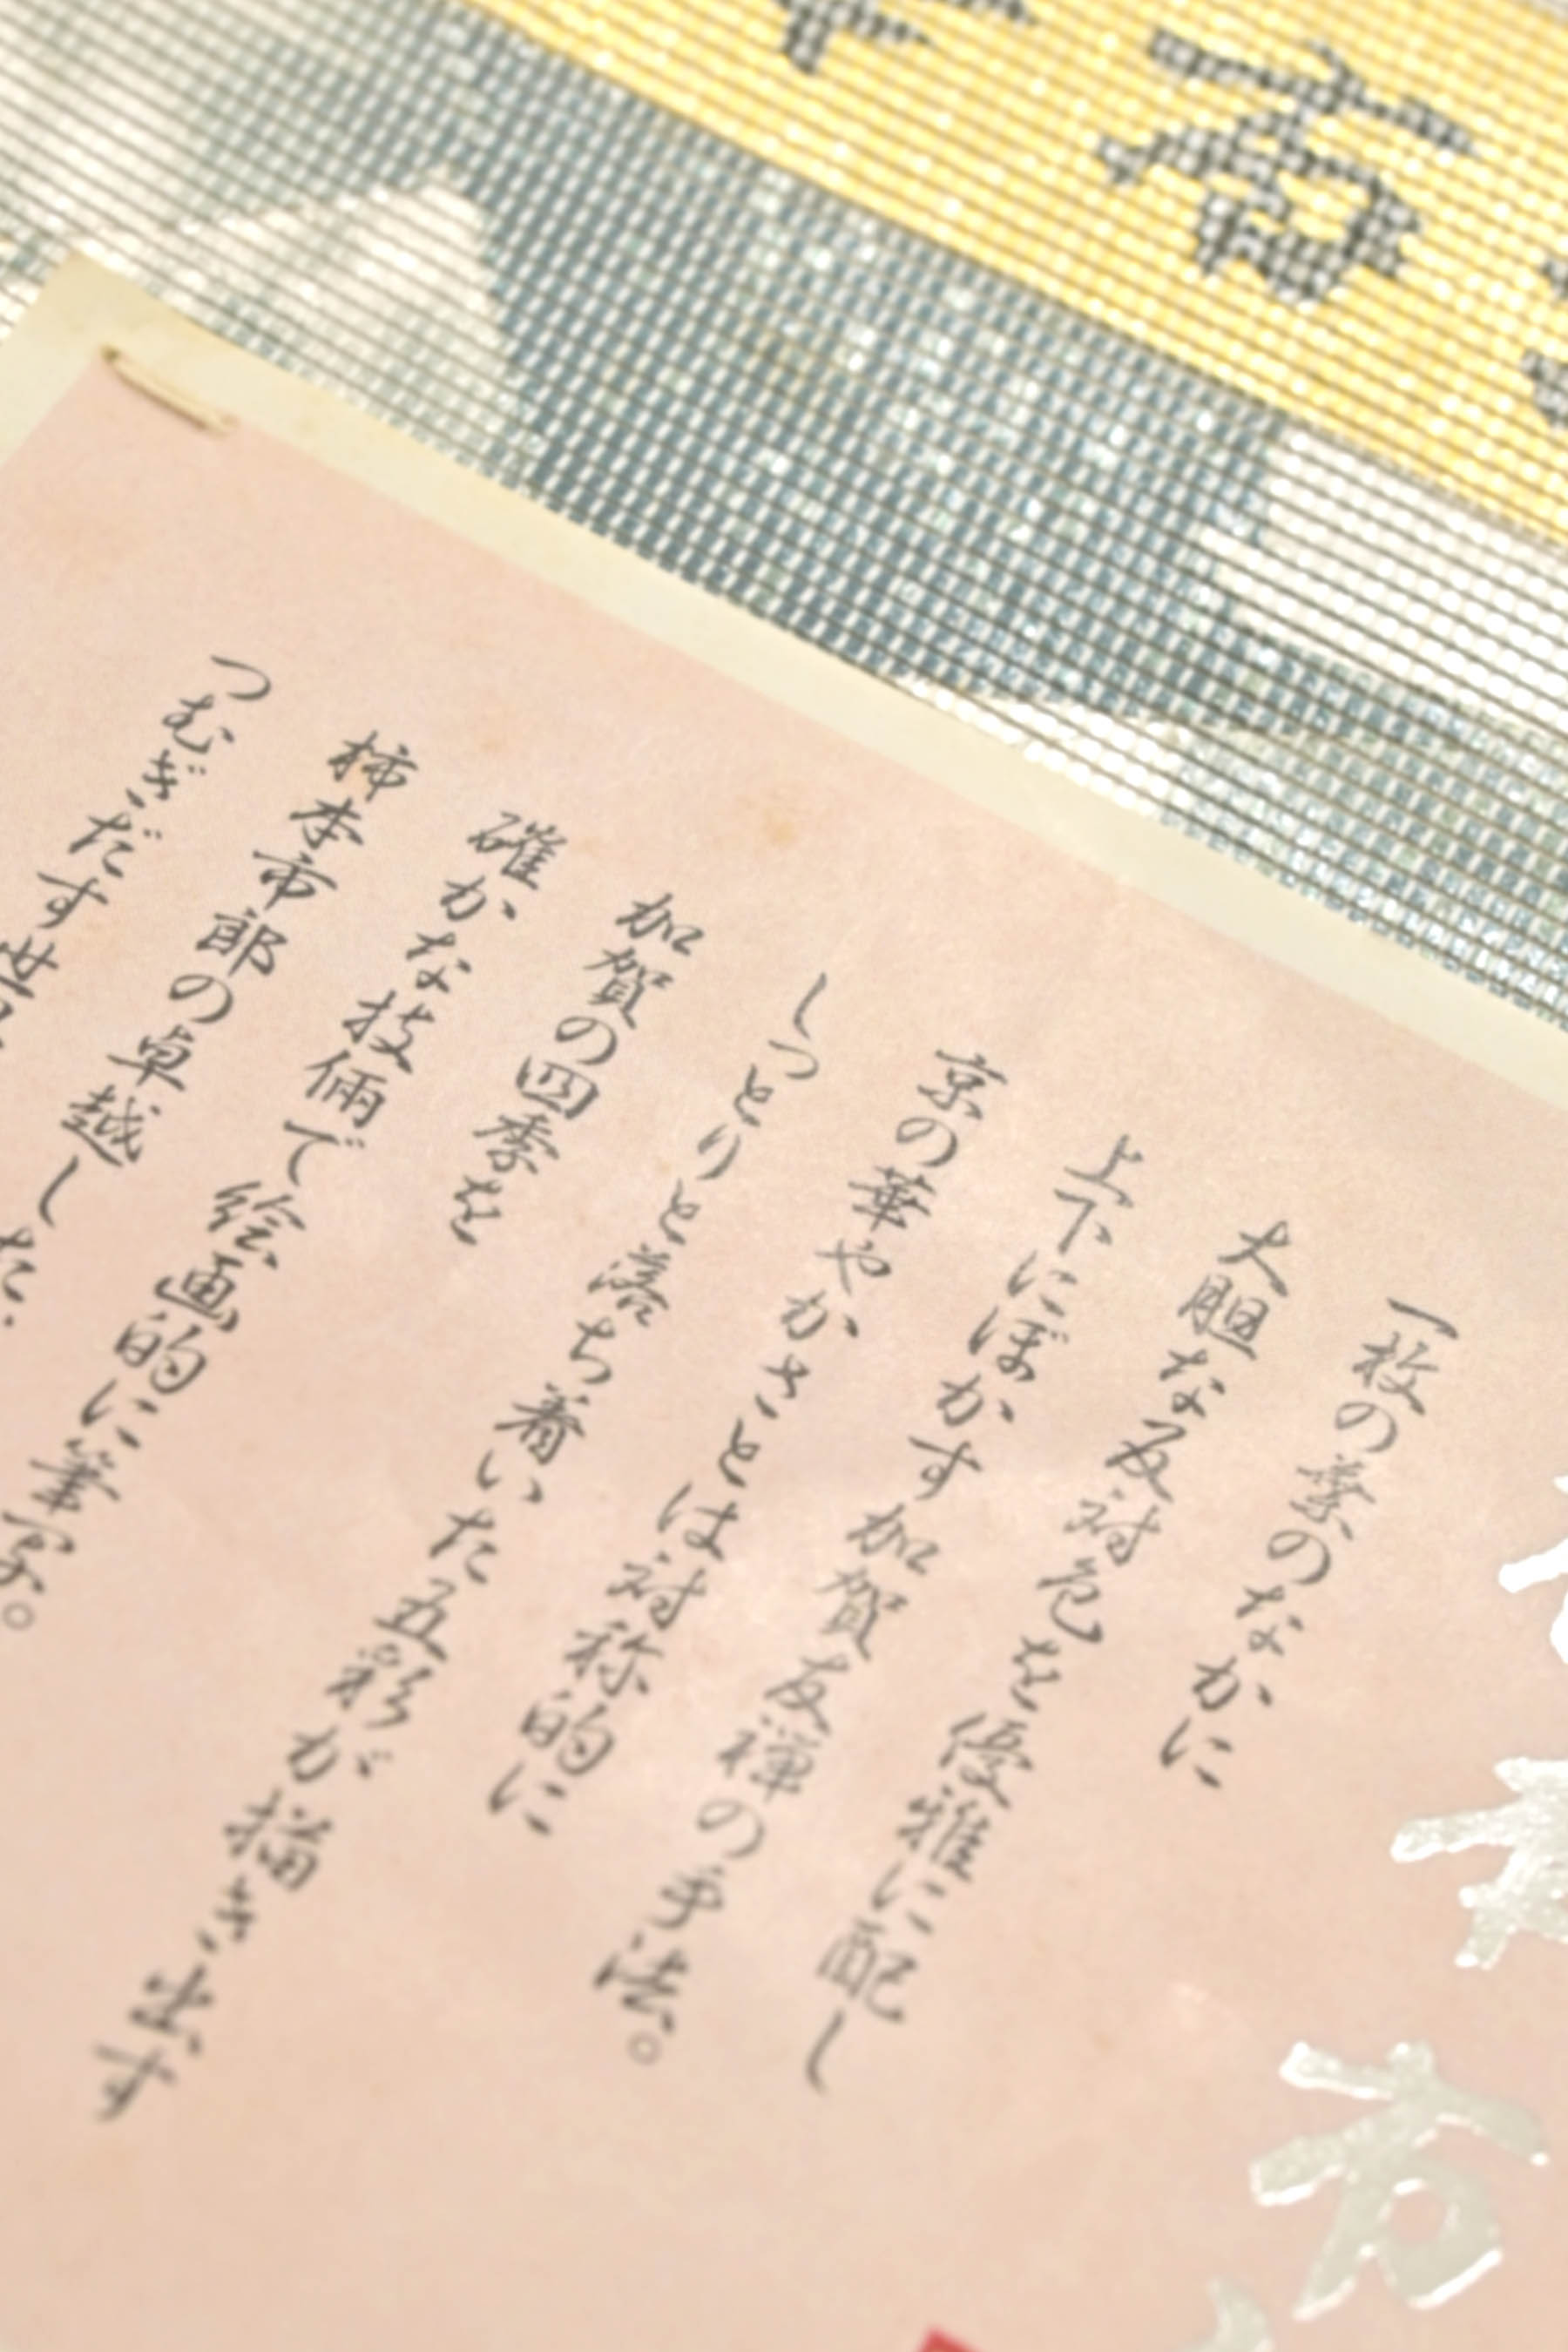 一枚の葉のなかに
大胆な反対色を優雅に配し
上下にぼかす加賀友禅の手法。
京の華やかさとは対称的に
しっとりと落ち着いた五彩が描き出す
加賀の四季を
確かな技倆で絵画的に筆写。
柿本市郎の卓越した
つむぎだす